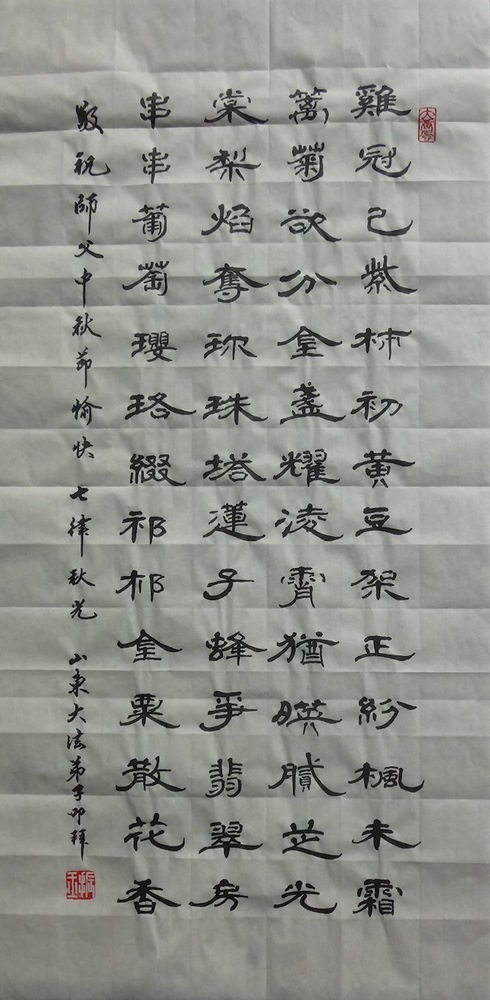 雞冠已紫柿初黃豆架正紛楓未霜
篱菊欲分金盞耀凌霄猶暎膩光
棠梨焰奪珎珠塔蓮子蜂爭翡翠房
串串葡萄瓔珞綴祁祁金粟散花香
敬祝師父中秋節愉快 七律秋光 山東大法弟子叩拜